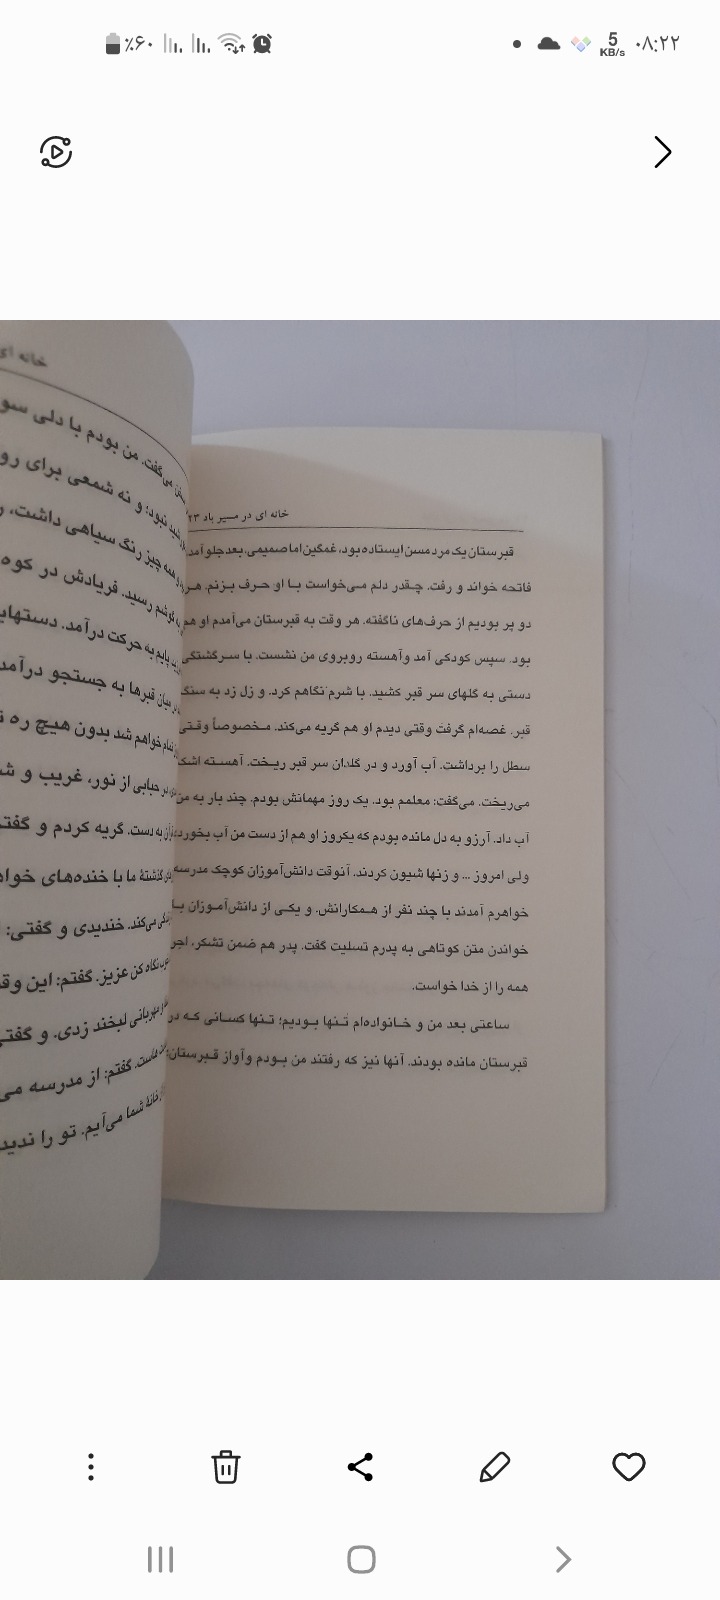 ٪۶۰
5 KB/s
۰۸:۲۲
خانه ای در مسیر باد ۲۳
قبرستان یک مرد مسن ایستاده بود، غمگین اما صمیمی. بعد جلو آمد.
فاتحه خواند و رفت. چقدر دلم می‌خواست با او حرف بزنم. هر
دو پر بودیم از حرف‌های ناگفته. هر وقت به قبرستان می‌آمدم او هم
بود. سپس کودکی آمد وآهسته روبروی من نشست. با سرگشتگی
دستی به گلهای سر قبر کشید. با شرم نگاهم کرد. و زل زد به سنگ
قبر. غصه‌ام گرفت وقتی دیدم او هم گریه می‌کند. مخصوصاً وقتی
سطل را برداشت. آب آورد و در گلدان سر قبر ریخت. آهسته اشک
می‌ریخت. می‌گفت: معلمم بود. یک روز مهمانش بودم. چند بار به من
آب داد. آرزو به دل مانده بودم که یکروز او هم از دست من آب بخورد.
ولی امروز ... و زنها شیون کردند. آنوقت دانش‌آموزان کوچک مدرسه
خواهرم آمدند با چند نفر از همکارانش. و یکی از دانش‌آموزان با
خواندن متن کوتاهی به پدرم تسلیت گفت. پدر هم ضمن تشکر، اجر
همه را از خدا خواست.
ساعتی بعد من و خانواده‌ام تنها بودیم؛ تنها کسانی که در
قبرستان مانده بودند. آنها نیز که رفتند من بودم وآواز قبرستان:
خانه ای
می‌گفت. من بودم با دلی
نبود؛ و نه شمعی برای
همه چیز رنگ سیاهی داشت.
گوشم رسید. فریادش در کوه
پایم به حرکت درآمد.
میان قبرها به جستجو
خواهم شد بدون هیچ ره
در حبابی از نور، غریب و
به دست. گریه کردم و
گذشتهٔ ما با خنده‌های
می‌کند. خندیدی و گفتی:
نگاه کن عزیز. گفتم: این
مهربانی لبخند زدی. و
گفتم: از مدرسه
خانهٔ شما می‌آیم. تو را